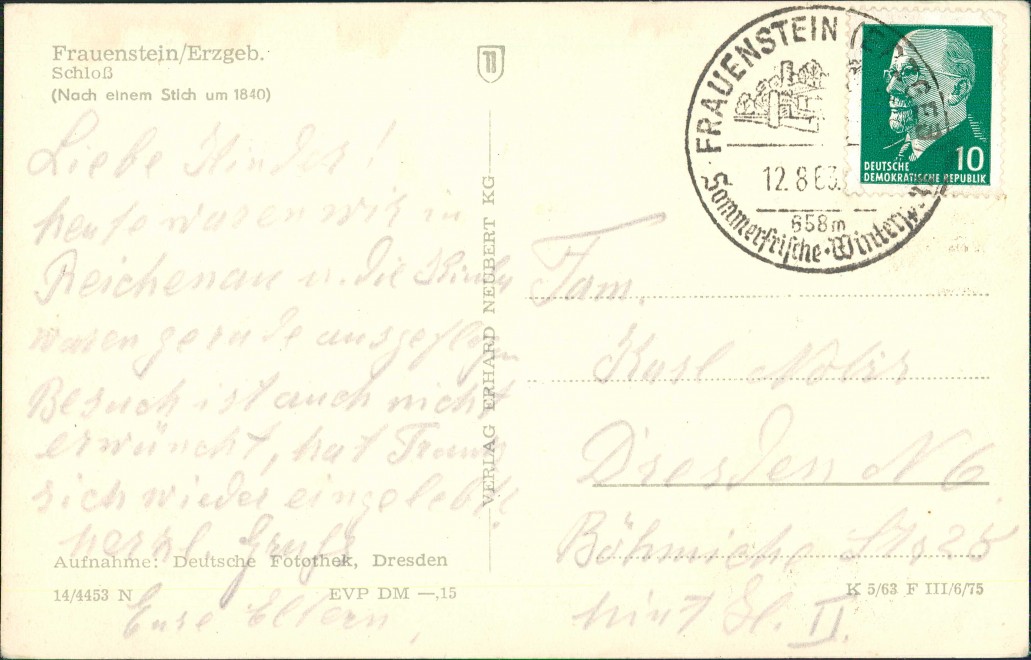 Frauenstein/Erzgeb.
Schloß
(Nach einem Stich um 1840)
Liebe Kinder!
heute waren wir in
Reichenau u. die Kinder
waren gerade ausgeflogen
Besuch ist auch nicht
erwüncht, hat
sich wieder eingelebt.
herzl. Grüße
Eure Eltern,
Aufnahme: Deutsche Fotothek, Dresden
14/4453 N
EVP DM —,15
VERLAG ERHARD NEUBERT KG
FRAUENSTEIN (ERZGEB
12.8.63.
658m
Sommerfrische · Winter
10
DEUTSCHE
DEMOKRATISCHE REPUBLIK
Fam.
Karl
Dresden N 6
Böhmische Str 25
hint
II.
K 5/63 F III/6/75